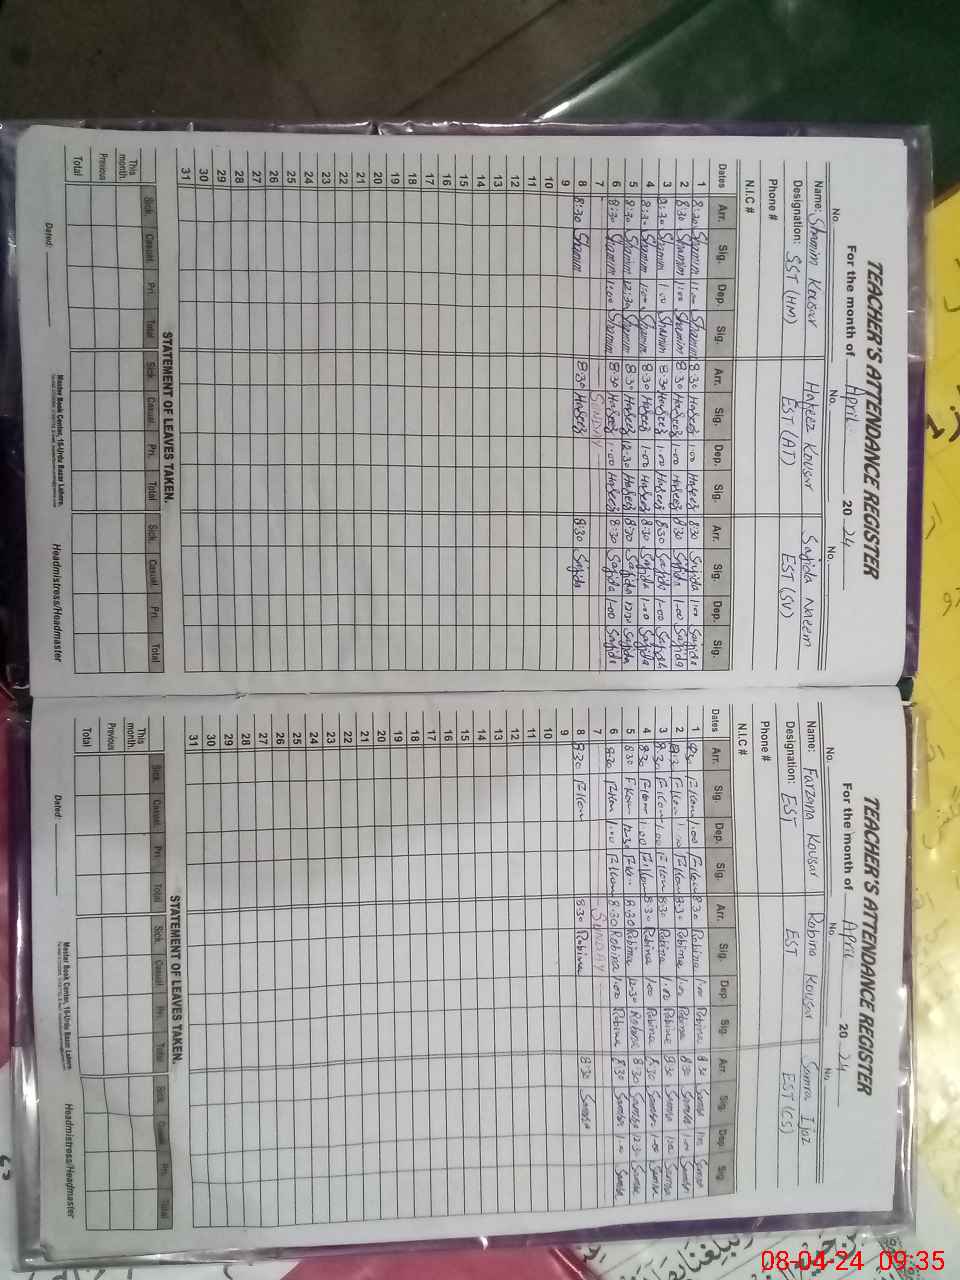 TEACHER'S ATTENDANCE REGISTER
For the month of April 2024
No. No. No.
Name: Shamim Kousar Hafeez Kousar Sajida Naeem
Designation: SST (HM) EST (AT) EST (SV)
Phone #
N.I.C #
Dates Arr. Sig. Dep. Sig. Arr. Sig. Dep. Sig. Arr. Sig. Dep. Sig.
1 8:30 Shamim 1:00 Shamim 8:30 Hafeez 1:00 Hafeez 8:30 Sajida 1:00 Sajida
2 8:30 Shamim 1:00 Shamim 8:30 Hafeez 1:00 Hafeez 8:30 Sajida 1:00 Sajida
3 8:30 Shamim 1:00 Shamim 8:30 Hafeez 1:00 Hafeez 8:30 Sajida 1:00 Sajida
4 8:30 Shamim 1:00 Shamim 8:30 Hafeez 1:00 Hafeez 8:30 Sajida 1:00 Sajida
5 8:30 Shamim 12:30 Shamim 8:30 Hafeez 12:30 Hafeez 8:30 Sajida 12:30 Sajida
6 8:30 Shamim 1:00 Shamim 8:30 Hafeez 1:00 Hafeez 8:30 Sajida 1:00 Sajida
7 SUNDAY
8 8:30 Shamim 8:30 Hafeez 8:30 Sajida
9
10
11
12
13
14
15
16
17
18
19
20
21
22
23
24
25
26
27
28
29
30
31
STATEMENT OF LEAVES TAKEN.
Sick. Casual. Pri. Total Sick. Casual. Pri. Total Sick. Casual. Pri. Total
This month.
Previous
Total
Dated: Master Book Center, 16-Urdu Bazar Lahore. Headmistress/Headmaster
TEACHER'S ATTENDANCE REGISTER
For the month of April 2024
No. No. No.
Name: Farzana Kousar Robina Kousar Samra Ijaz
Designation: EST EST EST (CS)
Phone #
N.I.C #
Dates Arr. Sig. Dep. Sig. Arr. Sig. Dep. Sig. Arr. Sig. Dep. Sig.
1 8:30 1:00 8:30 Robina 1:00 Robina 8:30 1:00
2 8:30 1:00 8:30 Robina 1:00 Robina 8:30 1:00
3 8:30 1:00 8:30 Robina 1:00 Robina 8:30 1:00
4 8:30 1:00 8:30 Robina 1:00 Robina 8:30 1:00
5 8:30 12:30 8:30 Robina 12:30 Robina 8:30 12:30
6 8:30 1:00 8:30 Robina 1:00 Robina 8:30 1:00
7 SUNDAY
8 8:30 8:30 Robina 8:30
9
10
11
12
13
14
15
16
17
18
19
20
21
22
23
24
25
26
27
28
29
30
31
STATEMENT OF LEAVES TAKEN.
Sick. Casual. Pri. Total Sick. Casual. Pri. Total Sick. Casual. Pri. Total
This month.
Previous
Total
Dated: Master Book Center, 16-Urdu Bazar Lahore. Headmistress/Headmaster
08-04-24 09:35